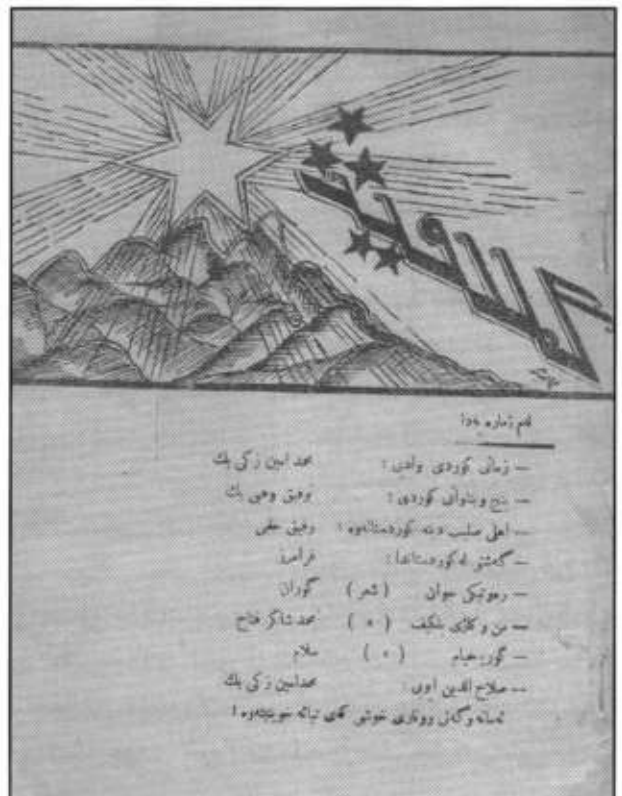 گلاویژ
لەم ژمارە یەدا
— زمانی کوردی وادبی : محمد امین زکی بك
— بنج وبناوانی کوردی : توفیق وهبی بك
— اهلی صلیب دینە کوردستانەوە : رفیق حلمی
— گەشتی لەکوردستاندا : فرامرز
— رەوتیکی جوان ( شعر ) گوران
— من و کلاری بنکیف ( » ) محمد شاکر فتاح
— گوریخیام ( » ) سلام
— صلاح الدین ایوبی : محمدامین زکی بك
ئەمانە وگەلی ووتاری خوشی کەی تیایە خوینینەوە !